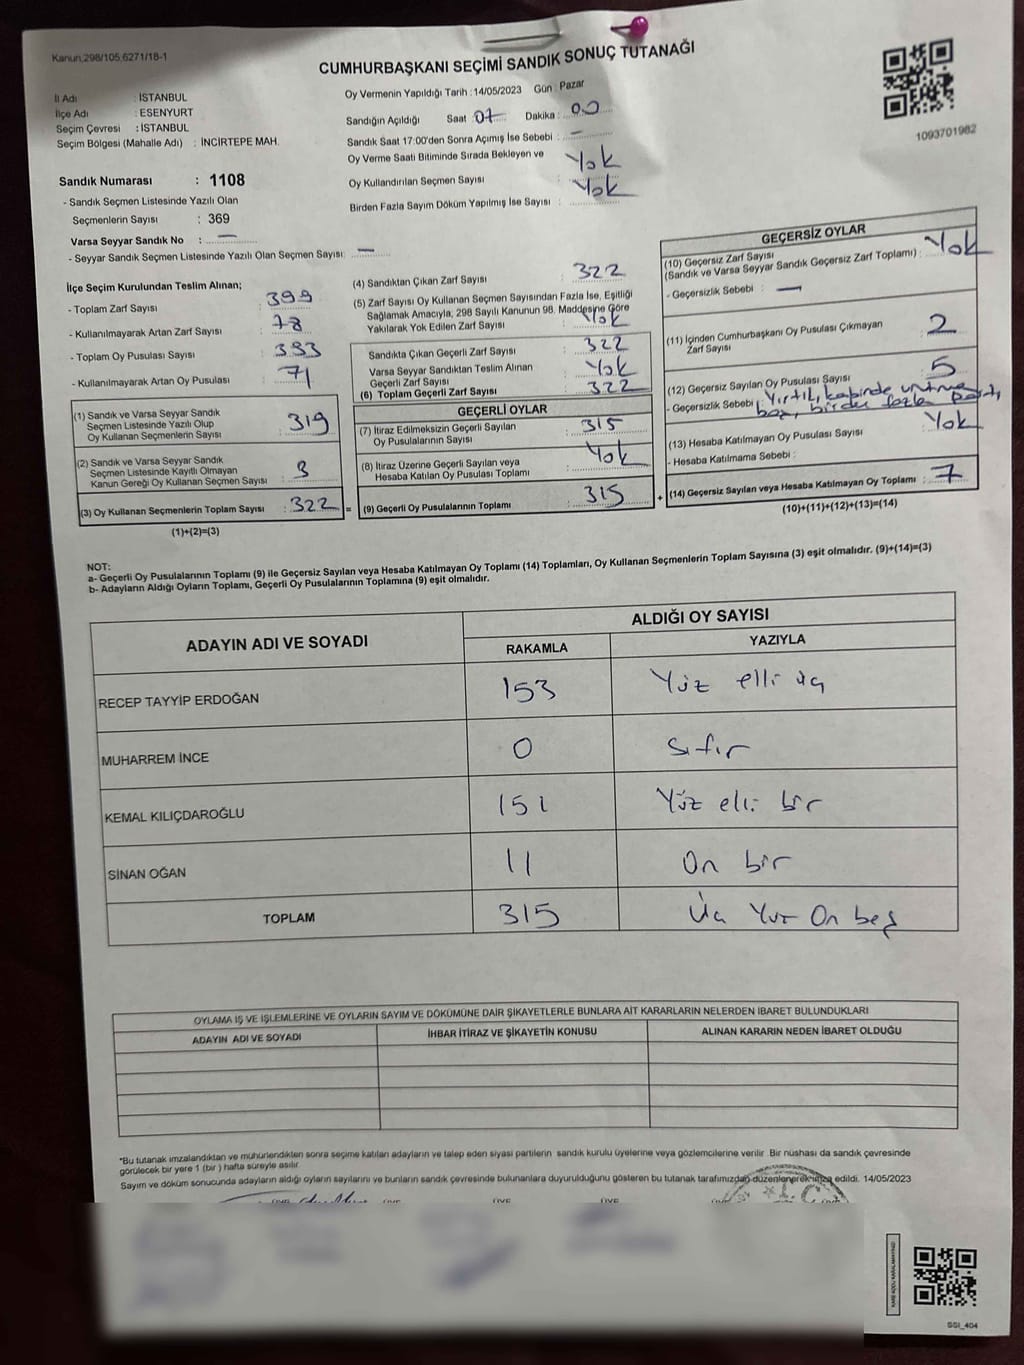 Kanun,298/105,6271/18-1
CUMHURBAŞKANI SEÇİMİ SANDIK SONUÇ TUTANAĞI
İl Adı : İSTANBUL
İlçe Adı : ESENYURT
Seçim Çevresi : İSTANBUL
Seçim Bölgesi (Mahalle Adı) : İNCİRTEPE MAH.
Oy Vermenin Yapıldığı Tarih :14/05/2023 Gün : Pazar
Sandığın Açıldığı Saat : 07 Dakika : 00
Sandık Saat 17:00'den Sonra Açımış İse Sebebi : —
Oy Verme Saati Bitiminde Sırada Bekleyen ve
Oy Kullandırılan Seçmen Sayısı : Yok
Birden Fazla Sayım Döküm Yapılmış İse Sayısı : Yok
1093701982
Sandık Numarası : 1108
- Sandık Seçmen Listesinde Yazılı Olan
Seçmenlerin Sayısı : 369
Varsa Seyyar Sandık No : —
- Seyyar Sandık Seçmen Listesinde Yazılı Olan Seçmen Sayısı: —
İlçe Seçim Kurulundan Teslim Alınan;
- Toplam Zarf Sayısı : 399
- Kullanılmayarak Artan Zarf Sayısı : 78
- Toplam Oy Pusulası Sayısı : 393
- Kullanılmayarak Artan Oy Pusulası : 71
(1) Sandık ve Varsa Seyyar Sandık
Seçmen Listesinde Yazılı Olup
Oy Kullanan Seçmenlerin Sayısı : 319
(2) Sandık ve Varsa Seyyar Sandık
Seçmen Listesinde Kayıtlı Olmayan
Kanun Gereği Oy Kullanan Seçmen Sayısı : 3
(3) Oy Kullanan Seçmenlerin Toplam Sayısı : 322 =
(1)+(2)=(3)
(4) Sandıktan Çıkan Zarf Sayısı : 322
(5) Zarf Sayısı Oy Kullanan Seçmen Sayısından Fazla İse, Eşitliği
Sağlamak Amacıyla, 298 Sayılı Kanunun 98. Maddesine Göre
Yakılarak Yok Edilen Zarf Sayısı : Yok
Sandıkta Çıkan Geçerli Zarf Sayısı : 322
Varsa Seyyar Sandıktan Teslim Alınan
Geçerli Zarf Sayısı : Yok
(6) Toplam Geçerli Zarf Sayısı : 322
GEÇERLİ OYLAR
(7) İtiraz Edilmeksizin Geçerli Sayılan
Oy Pusulalarının Sayısı : 315
(8) İtiraz Üzerine Geçerli Sayılan veya
Hesaba Katılan Oy Pusulası Toplamı : Yok
(9) Geçerli Oy Pusulalarının Toplamı : 315 +
GEÇERSİZ OYLAR
(10) Geçersiz Zarf Sayısı
(Sandık ve Varsa Seyyar Sandık Geçersiz Zarf Toplamı) : Yok
- Geçersizlik Sebebi : —
(11) İçinden Cumhurbaşkanı Oy Pusulası Çıkmayan
Zarf Sayısı : 2
(12) Geçersiz Sayılan Oy Pusulası Sayısı : 5
- Geçersizlik Sebebi : Yırtık, kabinde unutma
boş, birden fazla parti,
(13) Hesaba Katılmayan Oy Pusulası Sayısı : Yok
- Hesaba Katılmama Sebebi :
(14) Geçersiz Sayılan veya Hesaba Katılmayan Oy Toplamı : 7
(10)+(11)+(12)+(13)=(14)
NOT:
a- Geçerli Oy Pusulalarının Toplamı (9) ile Geçersiz Sayılan veya Hesaba Katılmayan Oy Toplamı (14) Toplamları, Oy Kullanan Seçmenlerin Toplam Sayısına (3) eşit olmalıdır. (9)+(14)=(3)
b- Adayların Aldığı Oyların Toplamı, Geçerli Oy Pusulalarının Toplamına (9) eşit olmalıdır.
ADAYIN ADI VE SOYADI
ALDIĞI OY SAYISI
RAKAMLA YAZIYLA
RECEP TAYYİP ERDOĞAN 153 Yüz elli üç
MUHARREM İNCE 0 Sıfır
KEMAL KILIÇDAROĞLU 151 Yüz elli bir
SİNAN OĞAN 11 On bir
TOPLAM 315 Üç Yüz On beş
OYLAMA İŞ VE İŞLEMLERİNE VE OYLARIN SAYIM VE DÖKÜMÜNE DAİR ŞİKAYETLERLE BUNLARA AİT KARARLARIN NELERDEN İBARET BULUNDUKLARI
ADAYIN ADI VE SOYADI İHBAR İTİRAZ VE ŞİKAYETİN KONUSU ALINAN KARARIN NEDEN İBARET OLDUĞU
*Bu tutanak imzalandıktan ve mühürlendikten sonra seçime katılan adayların ve talep eden siyasi partilerin sandık kurulu üyelerine veya gözlemcilerine verilir. Bir nüshası da sandık çevresinde
görülecek bir yere 1 (bir ) hafta süreyle asılır.
Sayım ve döküm sonucunda adayların aldığı oyların sayılarını ve bunların sandık çevresinde bulunanlara duyurulduğunu gösteren bu tutanak tarafımızdan düzenlenerek imza edildi. 14/05/2023
SSI_404